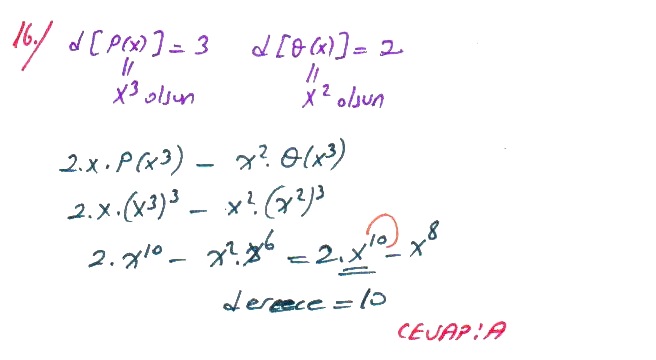 16./ d[P(x)] = 3 d[Q(x)] = 2
= =
x³ olsun x² olsun
2.x.P(x³) - x².Q(x³)
2.x.(x³)³ - x².(x²)³
2.x¹⁰ - x².x⁶ = 2.x¹⁰ - x⁸
derece = 10
CEVAP:A